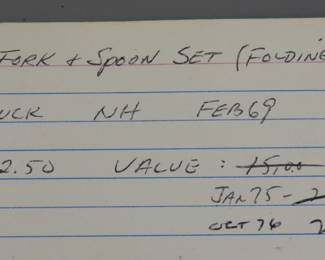 FORK + SPOON SET (FOLDING
UCK NH FEB 69
2.50 VALUE : 15,00
JAN 75 - 2
OCT 76 2